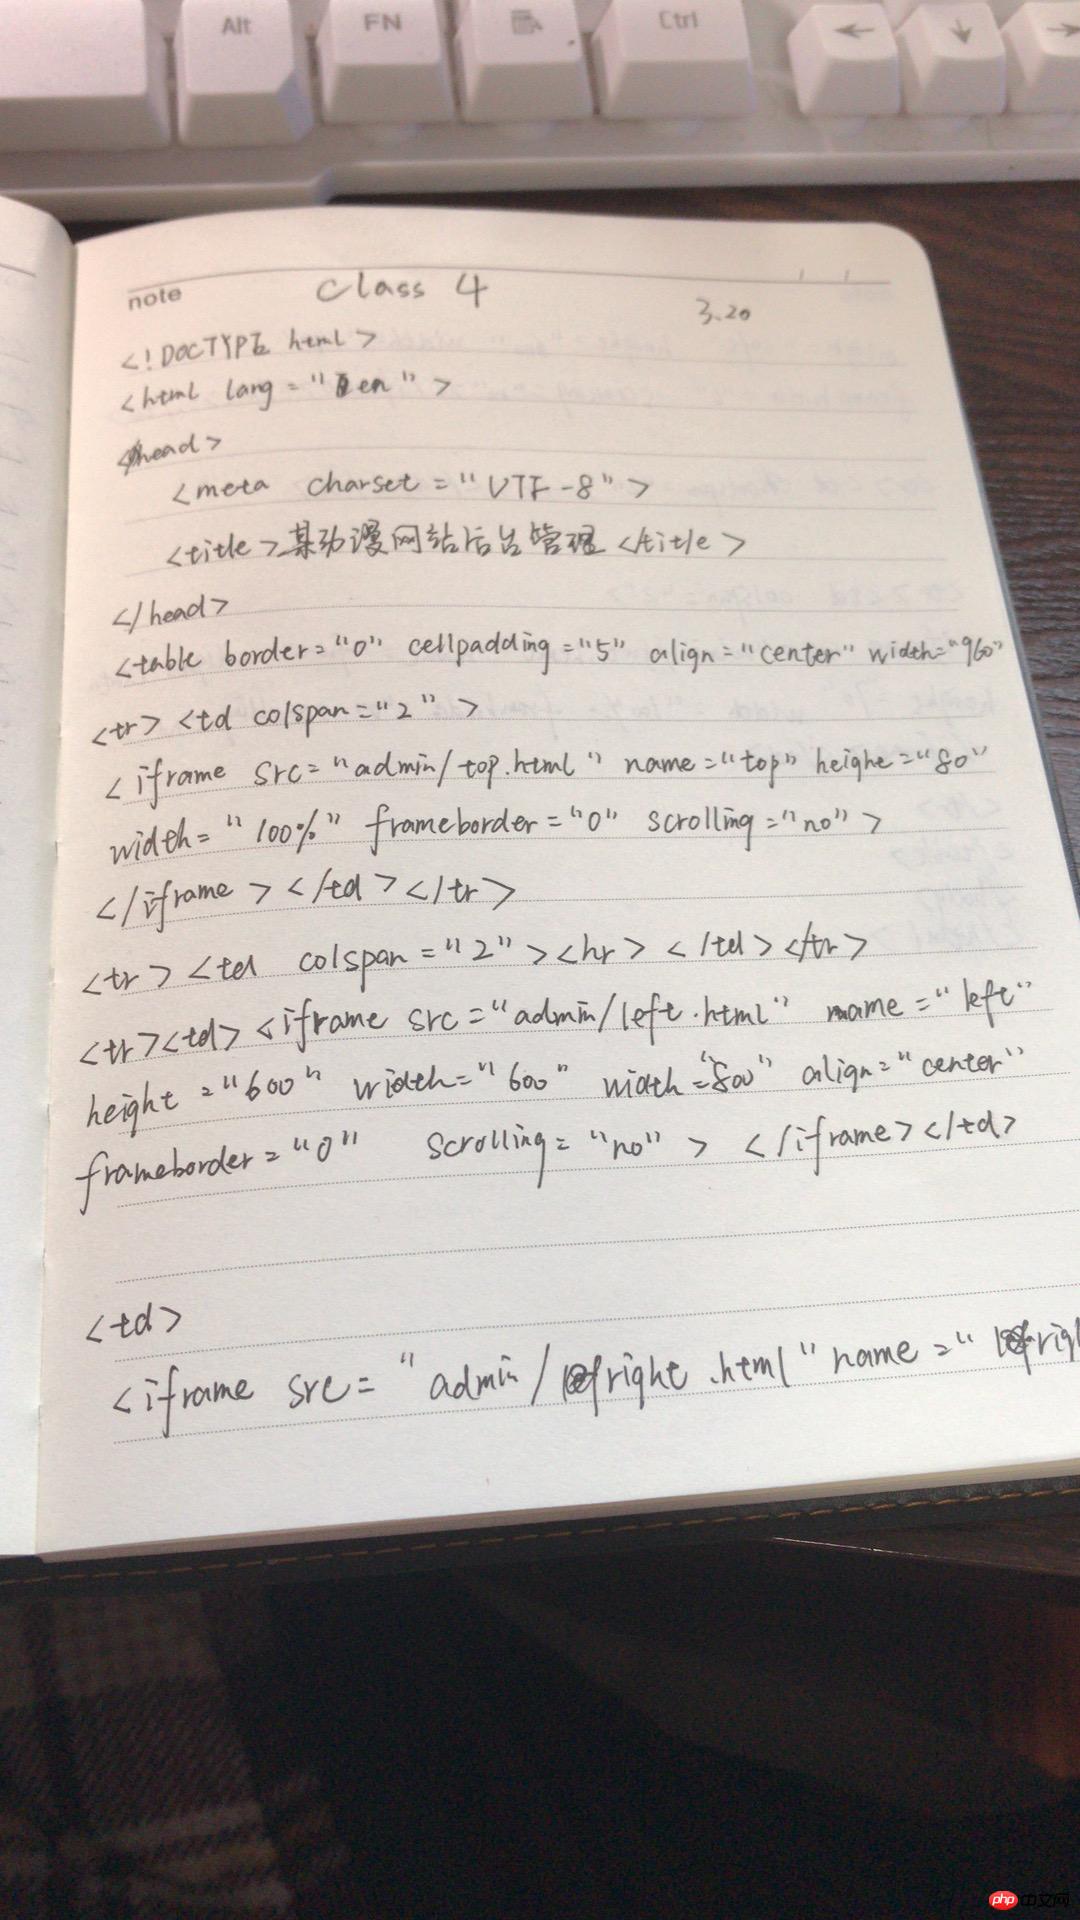 Alt FN Ctrl
← ↓ →
note class 4
3.20
<!DOCTYPE html>
<html lang="en">
<head>
<meta charset="UTF-8">
<title>某动漫网站后台管理</title>
</head>
<table border="0" cellpadding="5" align="center" width="960"
<tr> <td colspan="2">
<iframe src="admin/top.html" name="top" heighe="80"
width="100%" frameborder="0" scrolling="no">
</iframe></td></tr>
<tr><td colspan="2"><hr></td></tr>
<tr><td><iframe src="admin/left.html" name="left"
height="600" width="600" width="800" align="center"
frameborder="0" scrolling="no"> </iframe></td>
<td>
<iframe src="admin/right.html" name="righ
php 中文网